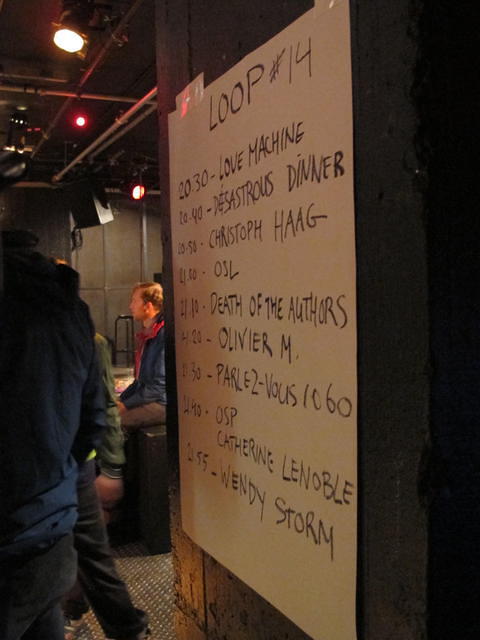 LOOP #14
20:30 - LOVE MACHINE
20:40 - DÉSASTROUS DINNER
20:50 - CHRISTOPH HAAG
21:00 - OSL
21:10 DEATH OF THE AUTHORS
21:20 - OLIVIER M.
21:30 - PARLEZ-VOUS 1060
21:40 - OSP
CATHERINE LENOBLE
21:55 - WENDY STORM